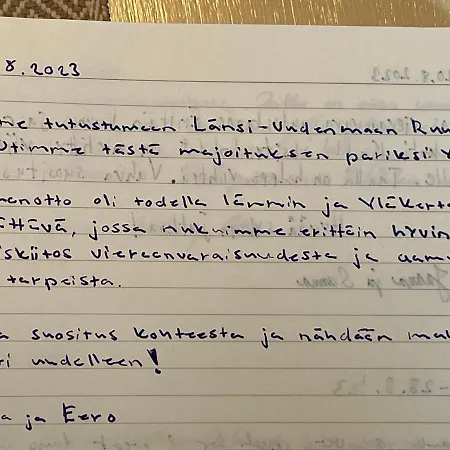 8.2023
me tutustumaan Länsi-Uudenmaan Ruu
timme tästä majoituksen pariksi
anotto oli todella lämmin ja Yläkerta
ttävä, jossa nukuimme erittäin hyvin
skiitos vieraanvaraisuudesta ja aam
tarpeista.
a suositus kohteesta ja nähdään ma
i uudelleen!
a ja Eero